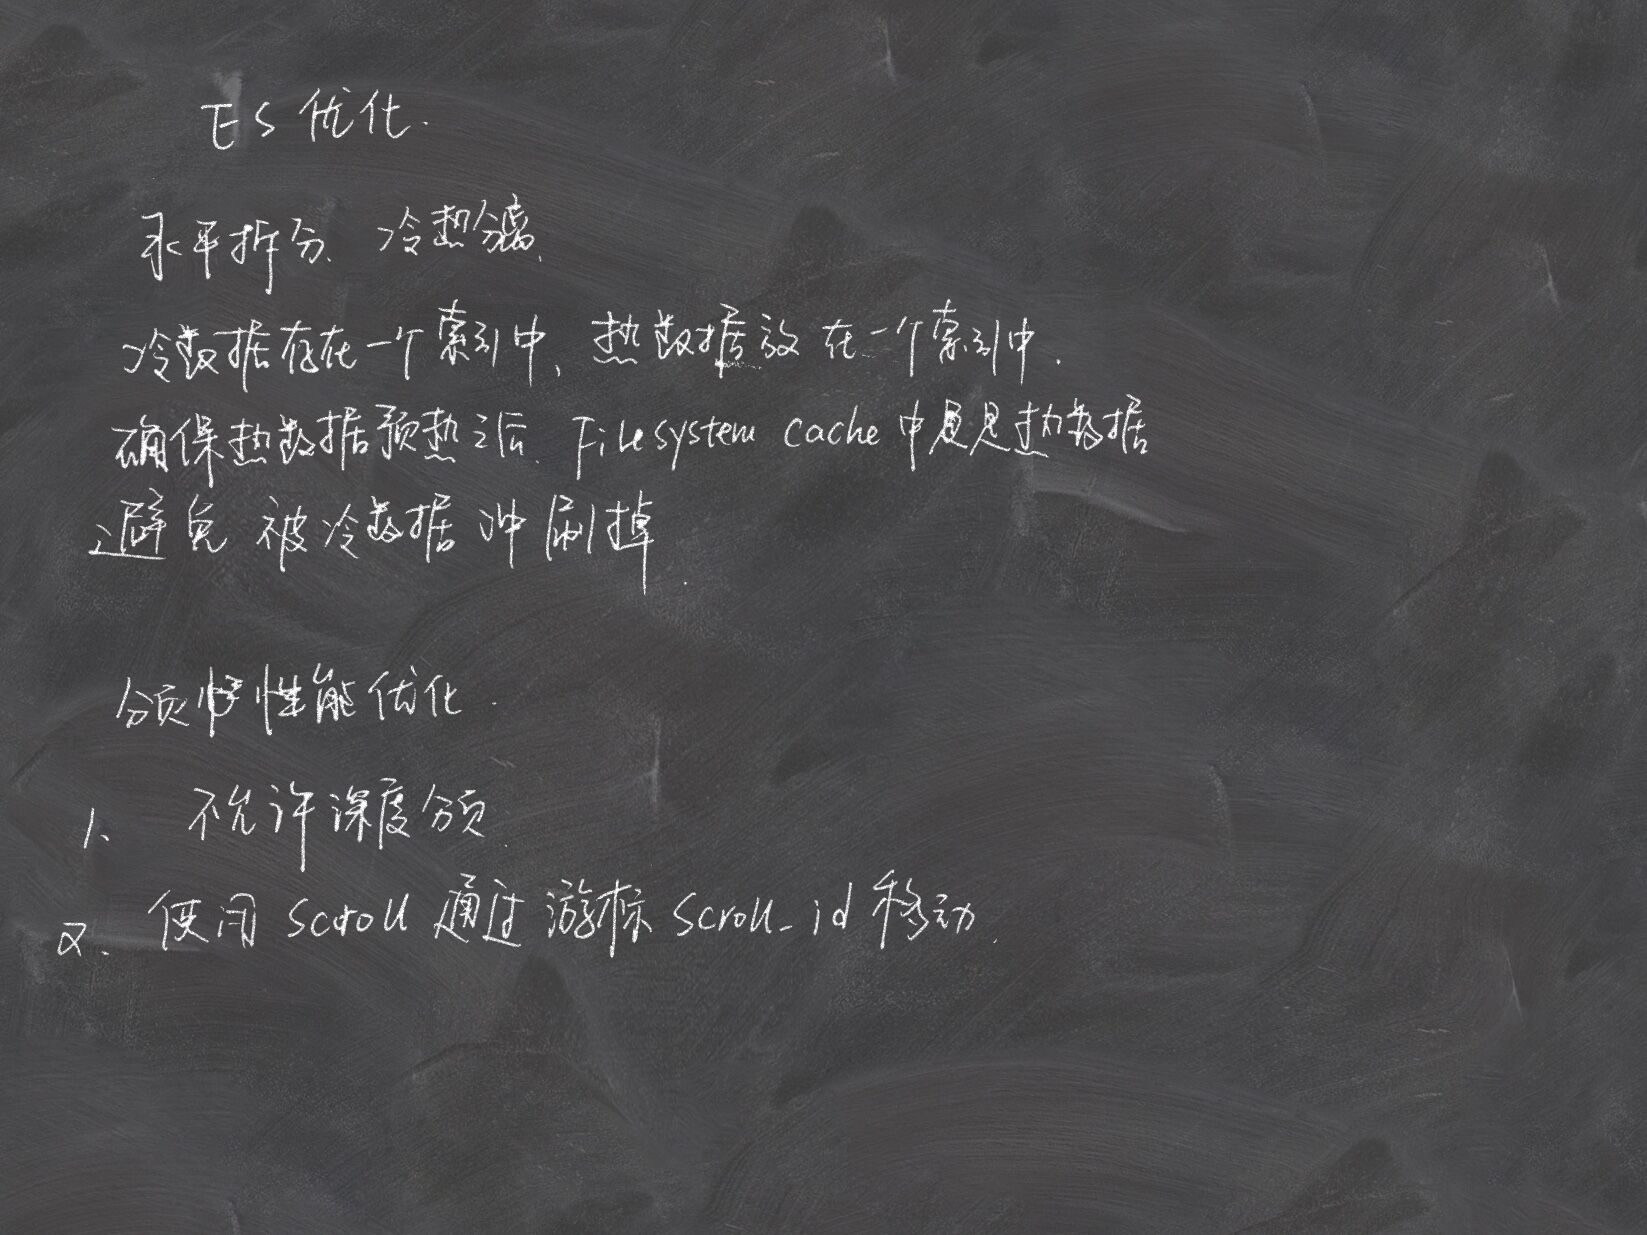 ES 优化.
水平拆分、冷热分离、
冷数据存在一个索引中、热数据放在一个索引中.
确保热数据预热之后、Filesystem cache 中是热数据
避免被冷数据冲刷掉.
分页性能优化.
1、不允许深度分页.
2、使用 scroll 通过游标 scroll_id 移动.